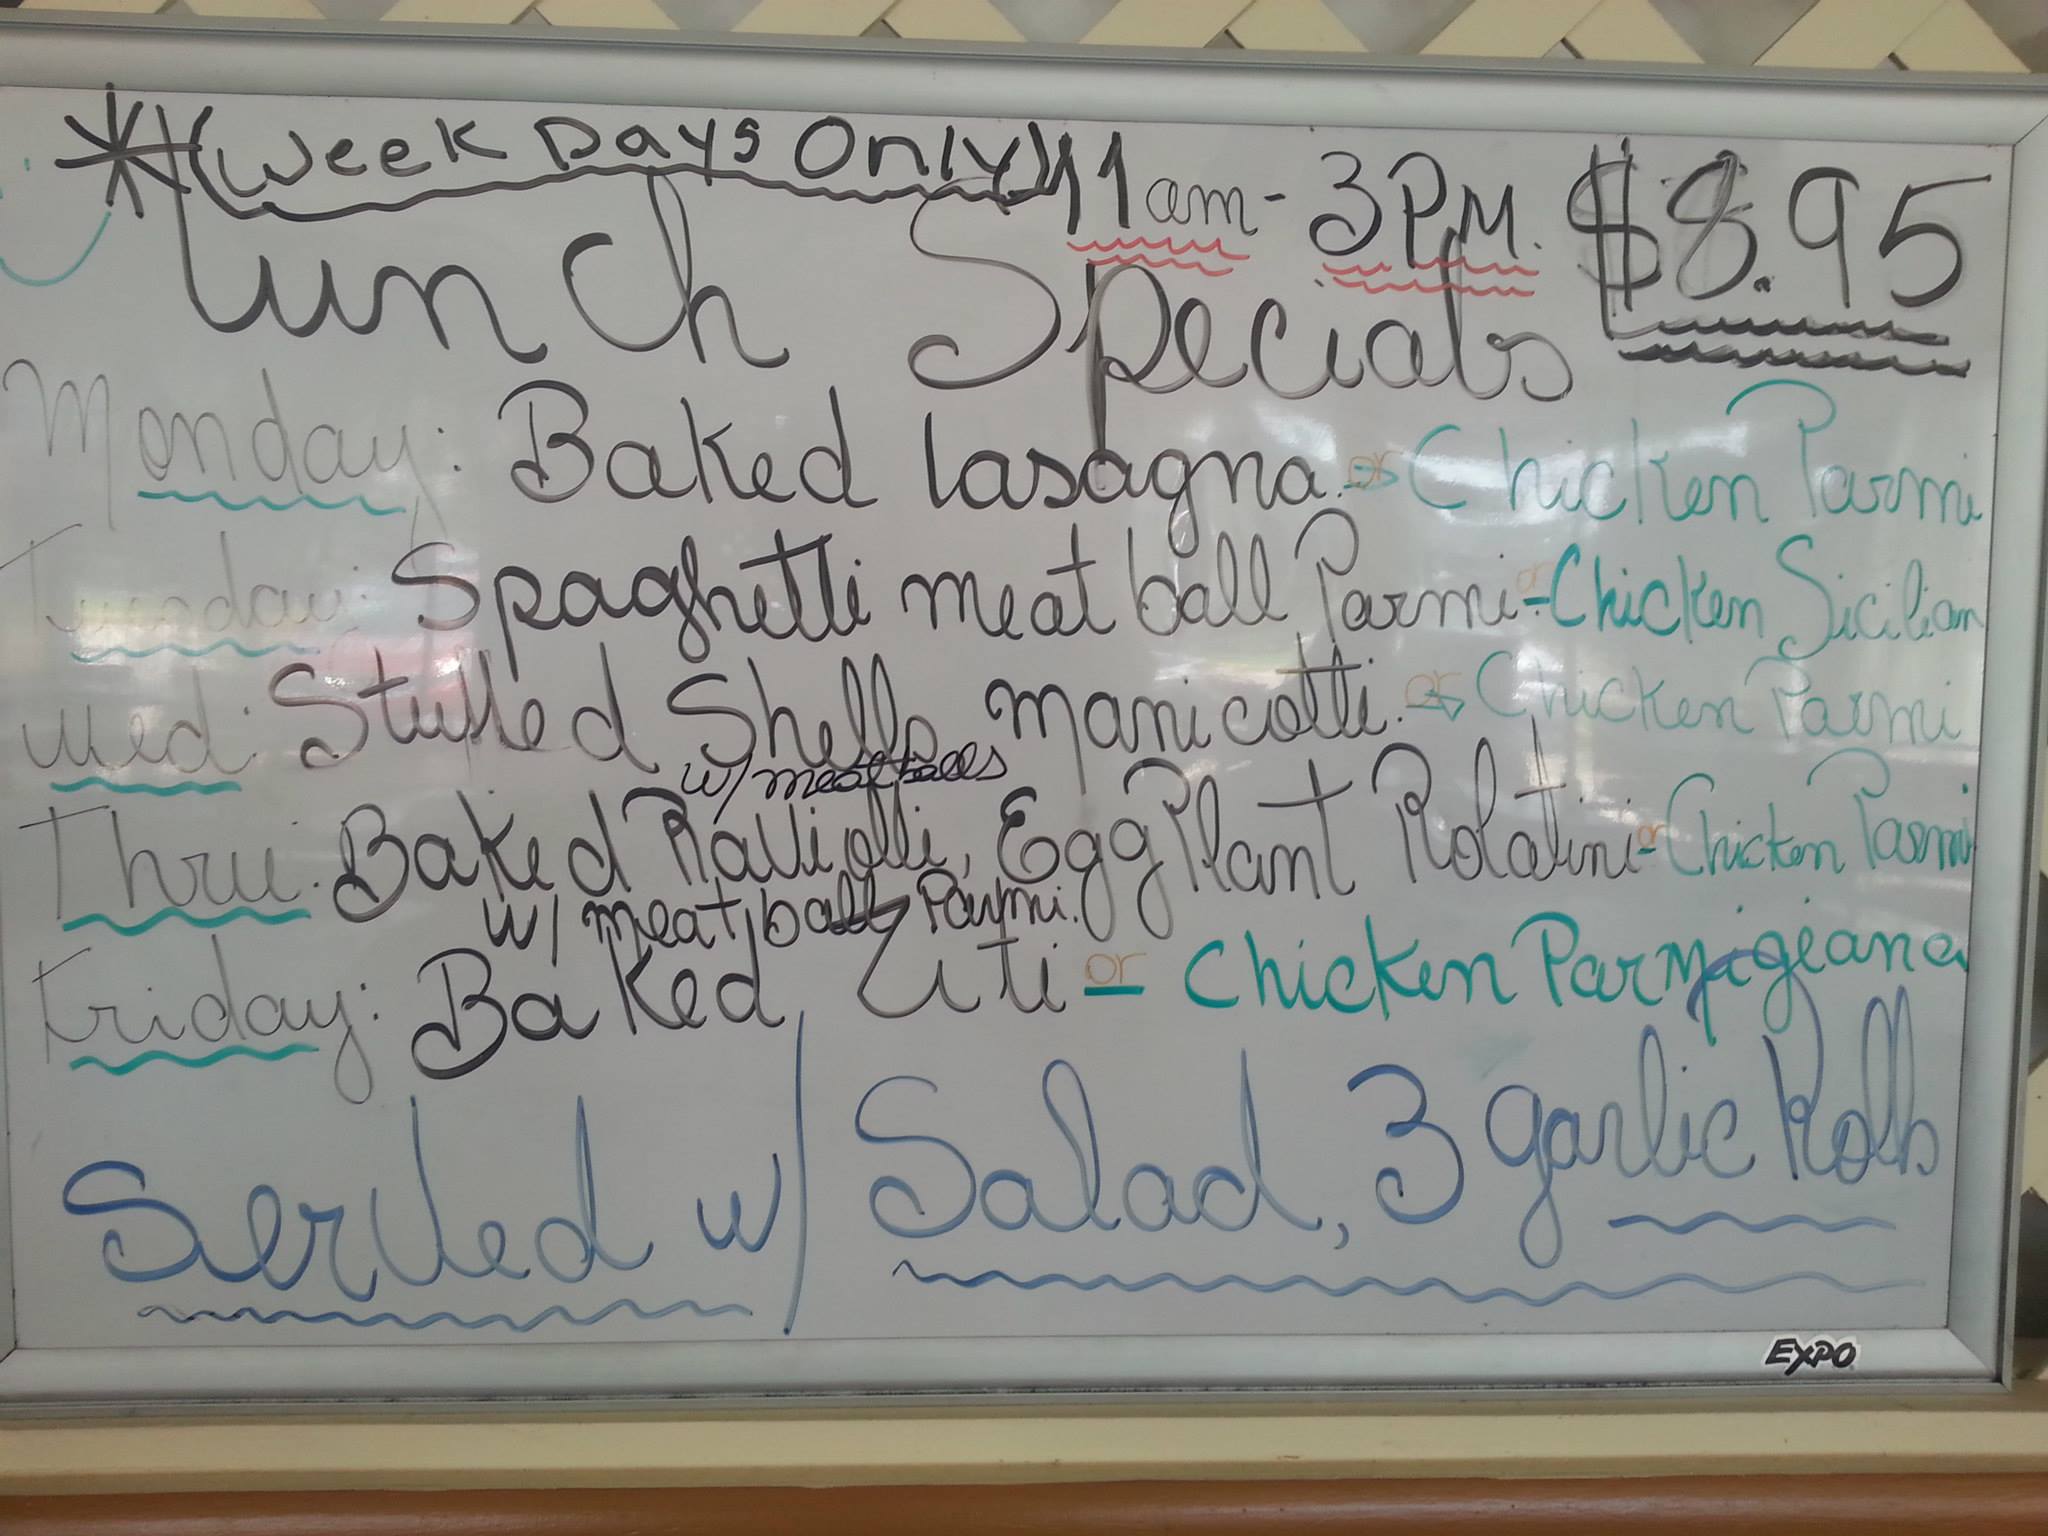 *(Week Days Only) 11am - 3PM. $8.95
Lunch Specials
Monday: Baked Lasagna. or Chicken Parmi
Tuesday: Spaghetti meat ball Parmi or Chicken Sicilian
Wed: Stuffed Shells, manicotti. or Chicken Parmi
w/ meatballs
Thru: Baked Raviolli, EggPlant Rolatini - or Chicken Parmi
w/ meat ball Parmi.
Friday: Baked Ziti or Chicken Parmigeana
Served w/ Salad, 3 garlic Rolls
EXPO